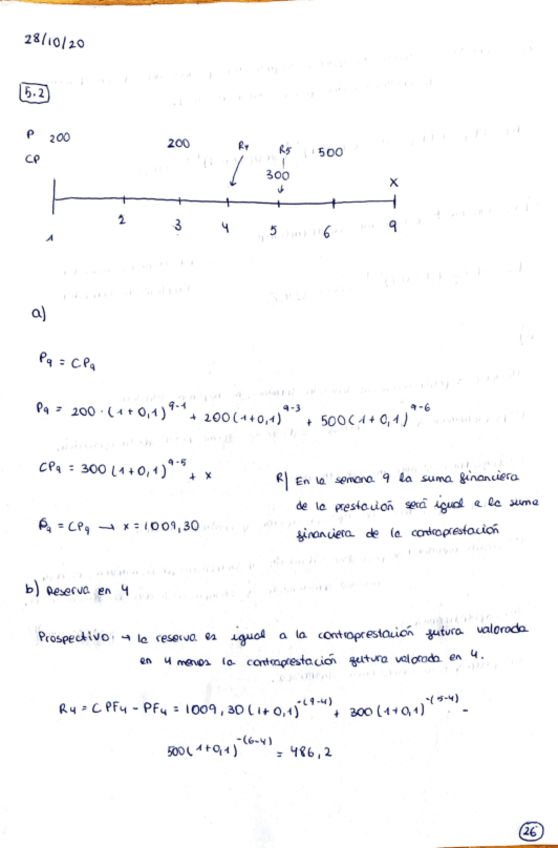 28/10/20
5.2
P 200 200 R4 R5 500
CP 300 x
1 2 3 4 5 6 9
a)
P9 = CP9
P9 = 200 · (1+0,1)^9-1 + 200(1+0,1)^9-3 + 500(1+0,1)^9-6
CP9 = 300 (1+0,1)^9-5 + x
P9 = CP9 → x = 1009,30
R| En la semana 9 la suma financiera
de la prestación será igual a la suma
financiera de la contraprestación
b) Reserva en 4
Prospectivo: → la reserva es igual a la contraprestación futura valorada
en 4 menos la contraprestación futura valorada en 4.
R4 = CPF4 - PF4 = 1009,30 (1+0,1)^-(9-4) + 300 (1+0,1)^-(5-4) -
500(1+0,1)^-(6-4) = 486,2
26